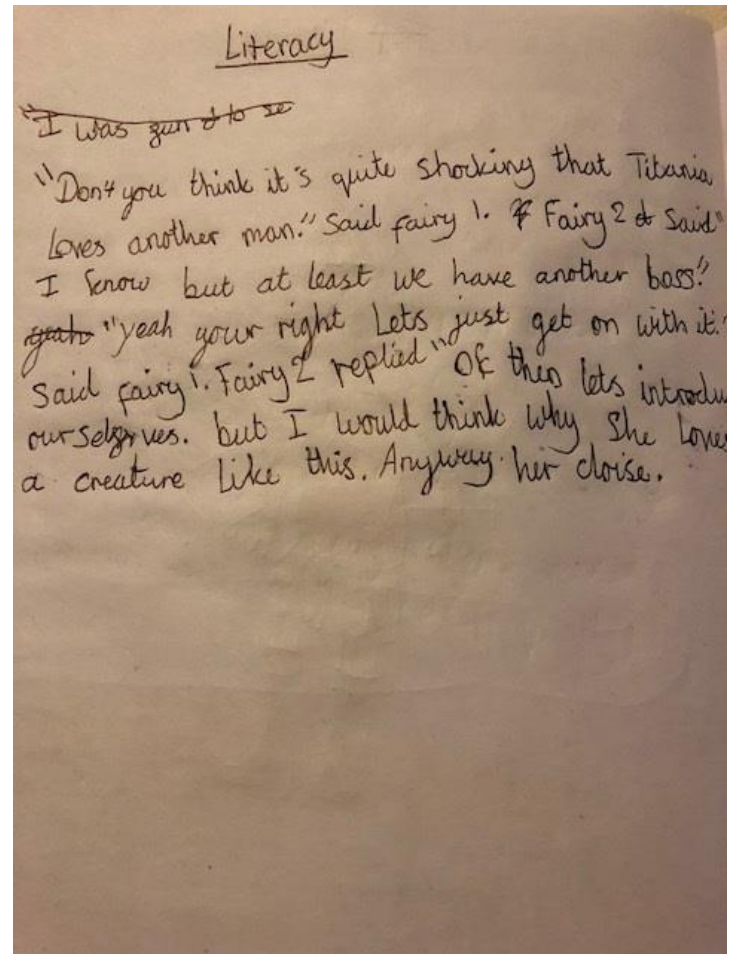 Literacy
"I was gun d to se
"Don't you think it's quite shocking that Titania
Loves another man." Said fairy 1. F Fairy 2 d Said"
I know but at least we have another boss."
yeah "yeah your right Lets just get on with it."
Said fairy 1. Fairy 2 replied "Ok then lets introdu
ourselves. but I would think why She Loves
a creature Like this. Anyway her cloise.